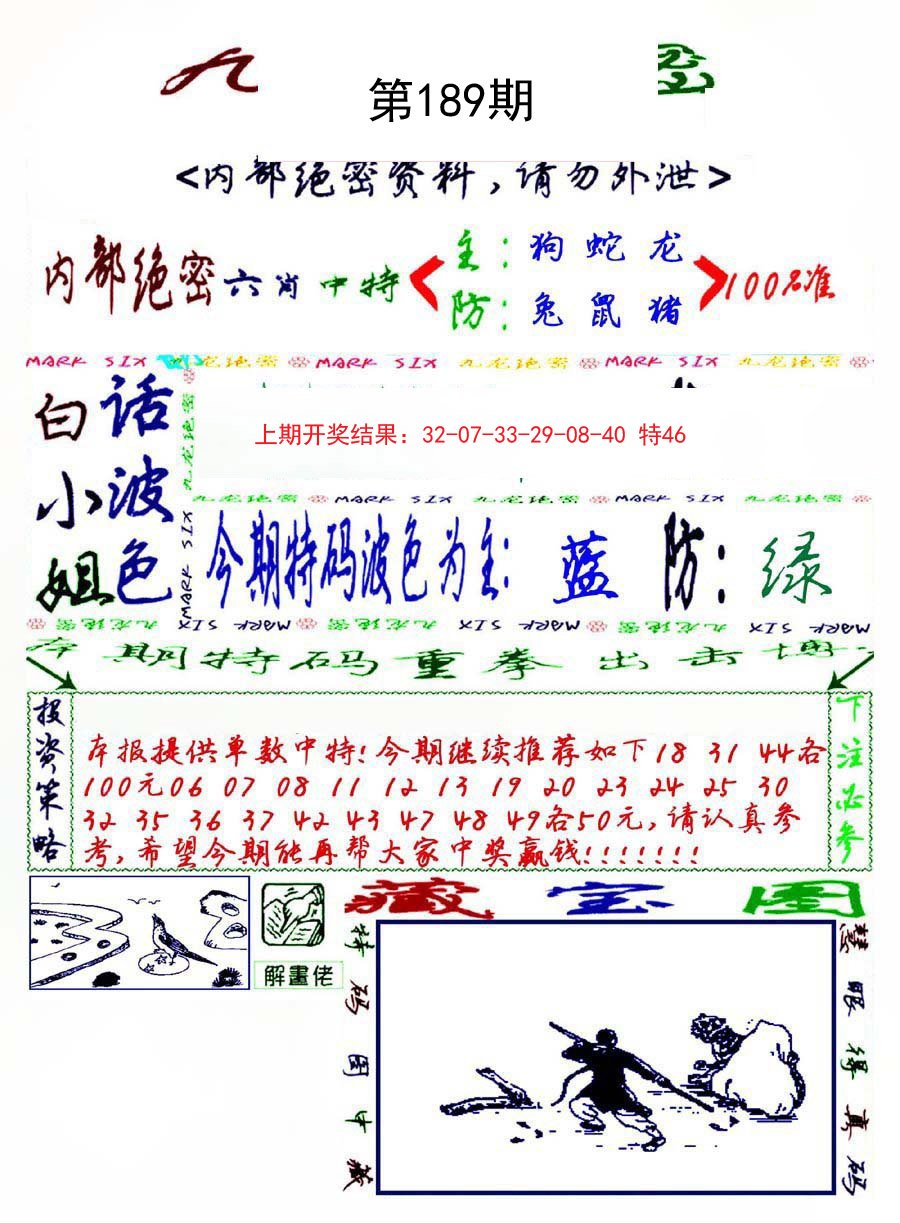 九
密
第189期
<内部绝密资料,请勿外泄>
内部绝密六肖中特
主:狗 蛇 龙
防:兔 鼠 猪
100%准
MARK SIX 九龙绝密 MARK SIX 九龙绝密 MARK SIX 九龙绝密
白小姐
话波色
上期开奖结果：32-07-33-29-08-40 特46
九龙绝密
MARK SIX
九龙绝密 MARK SIX 九龙绝密 MARK SIX 九龙绝密
今期特码波色为主: 蓝 防: 绿
九龙绝密 MARK SIX 九龙绝密 MARK SIX 九龙绝密 MARK SIX
本期特码重拳出击博
投资策略
本报提供单数中特!今期继续推荐如下18 31 44各
100元06 07 08 11 12 13 19 20 23 24 25 30
32 35 36 37 42 43 47 48 49各50元,请认真参
考,希望今期能再帮大家中奖赢钱!!!!!!!
下注必参
解畫佬
藏宝图
特码图中藏
慧眼得真码